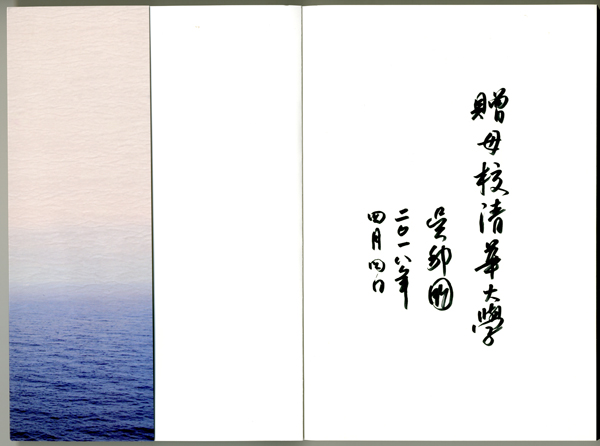 贈母校清華大學
吴邦国
二〇一八年
四月四日